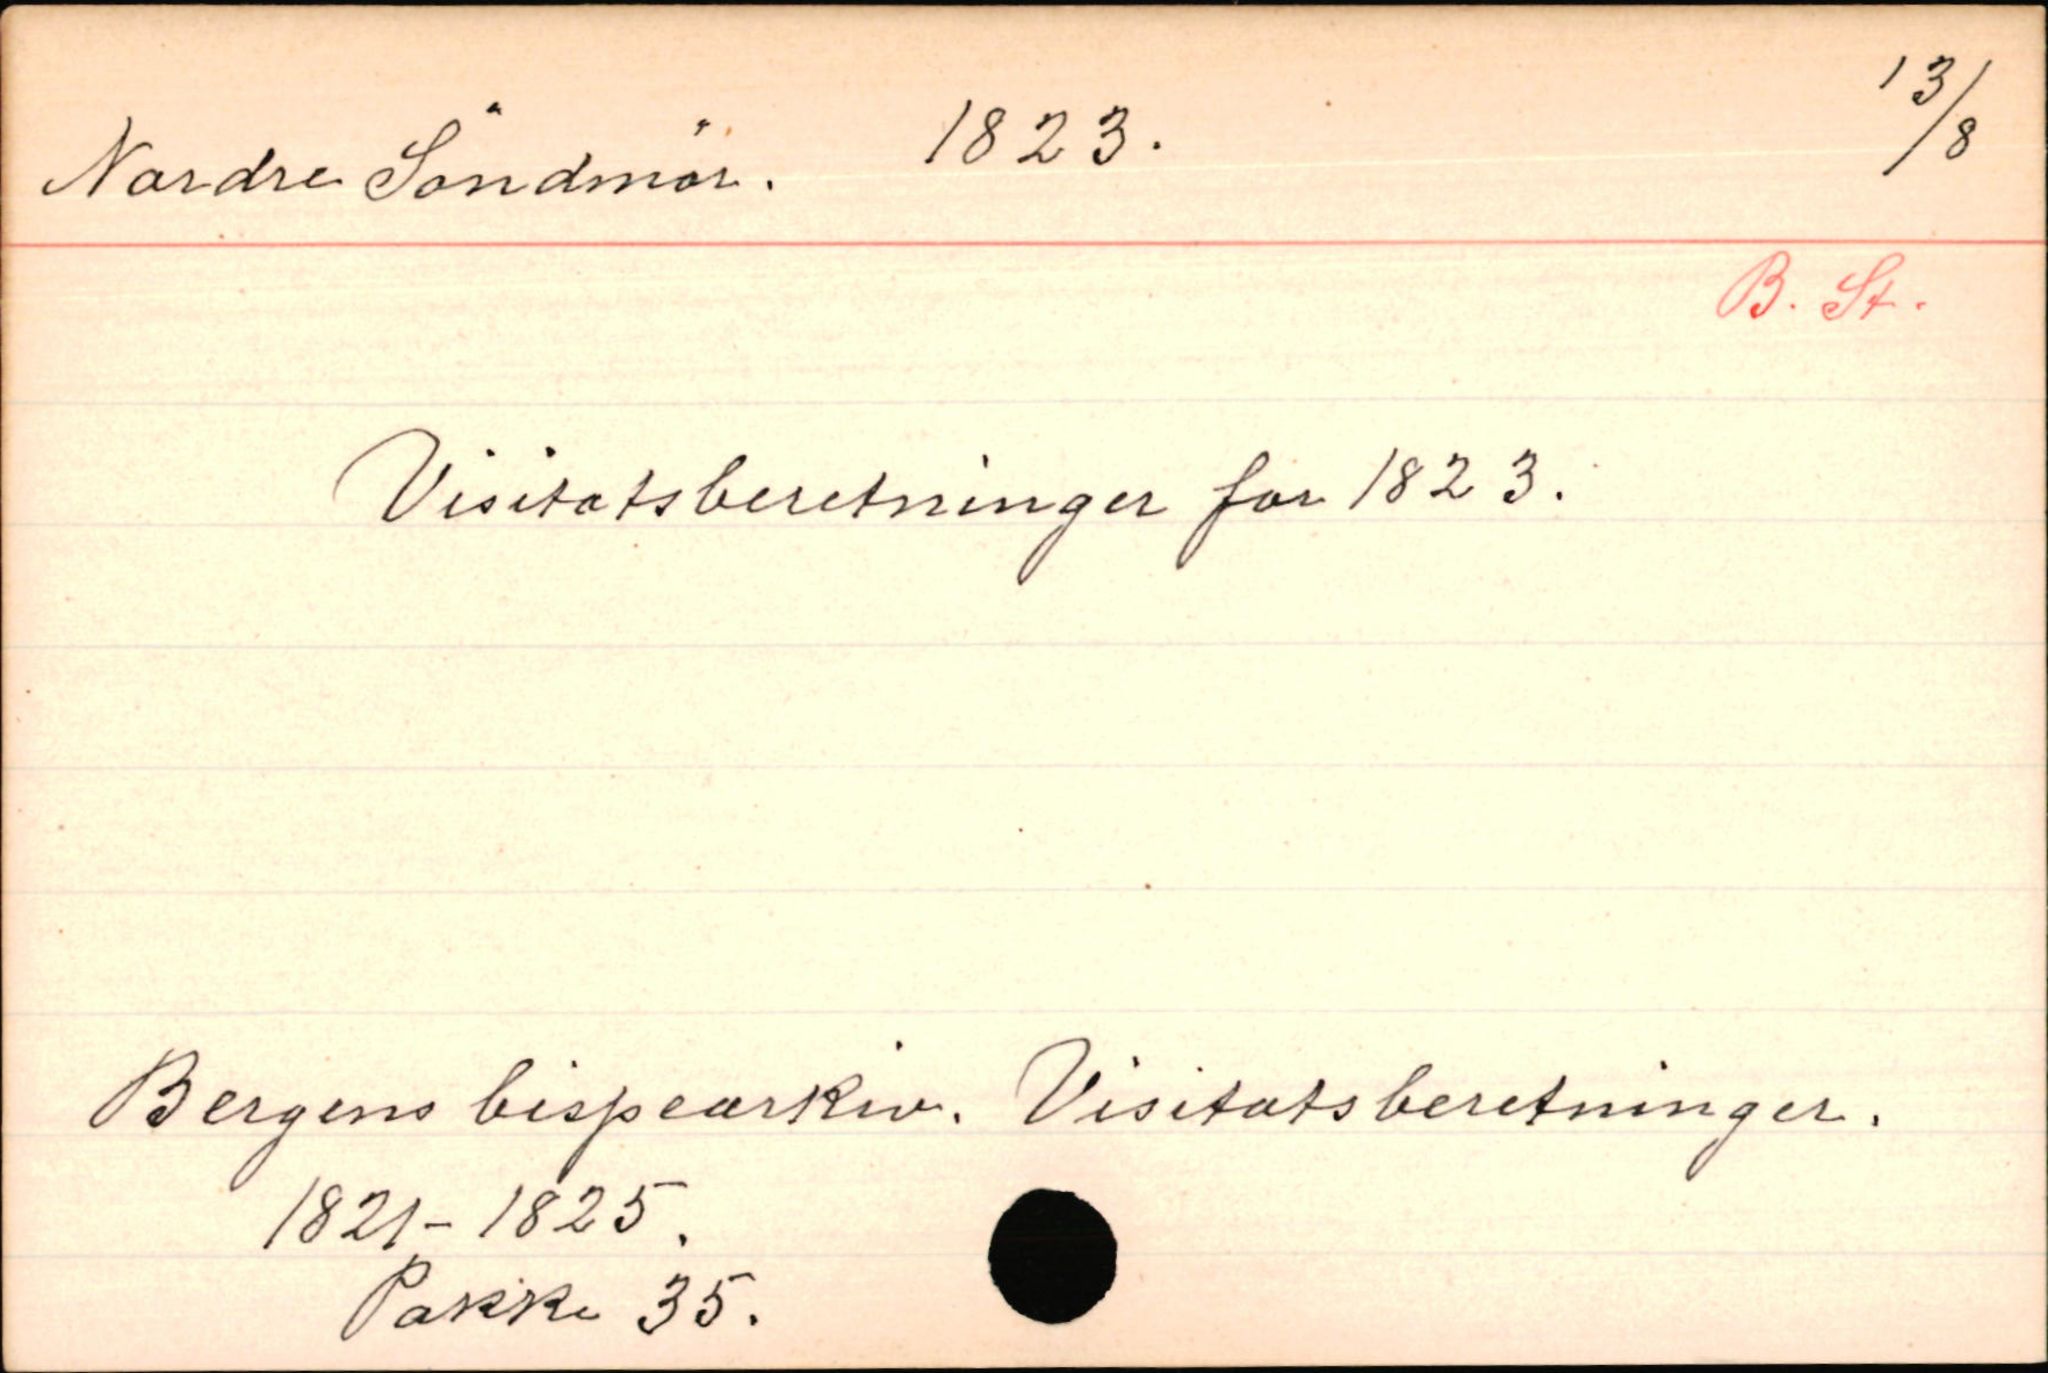 Nordre Söndmör. 1823. 13/8
B. St.
Visitatsberetninger for 1823.
Bergens bispearkiv. Visitatsberetninger.
1821-1825.
Pakke 35.